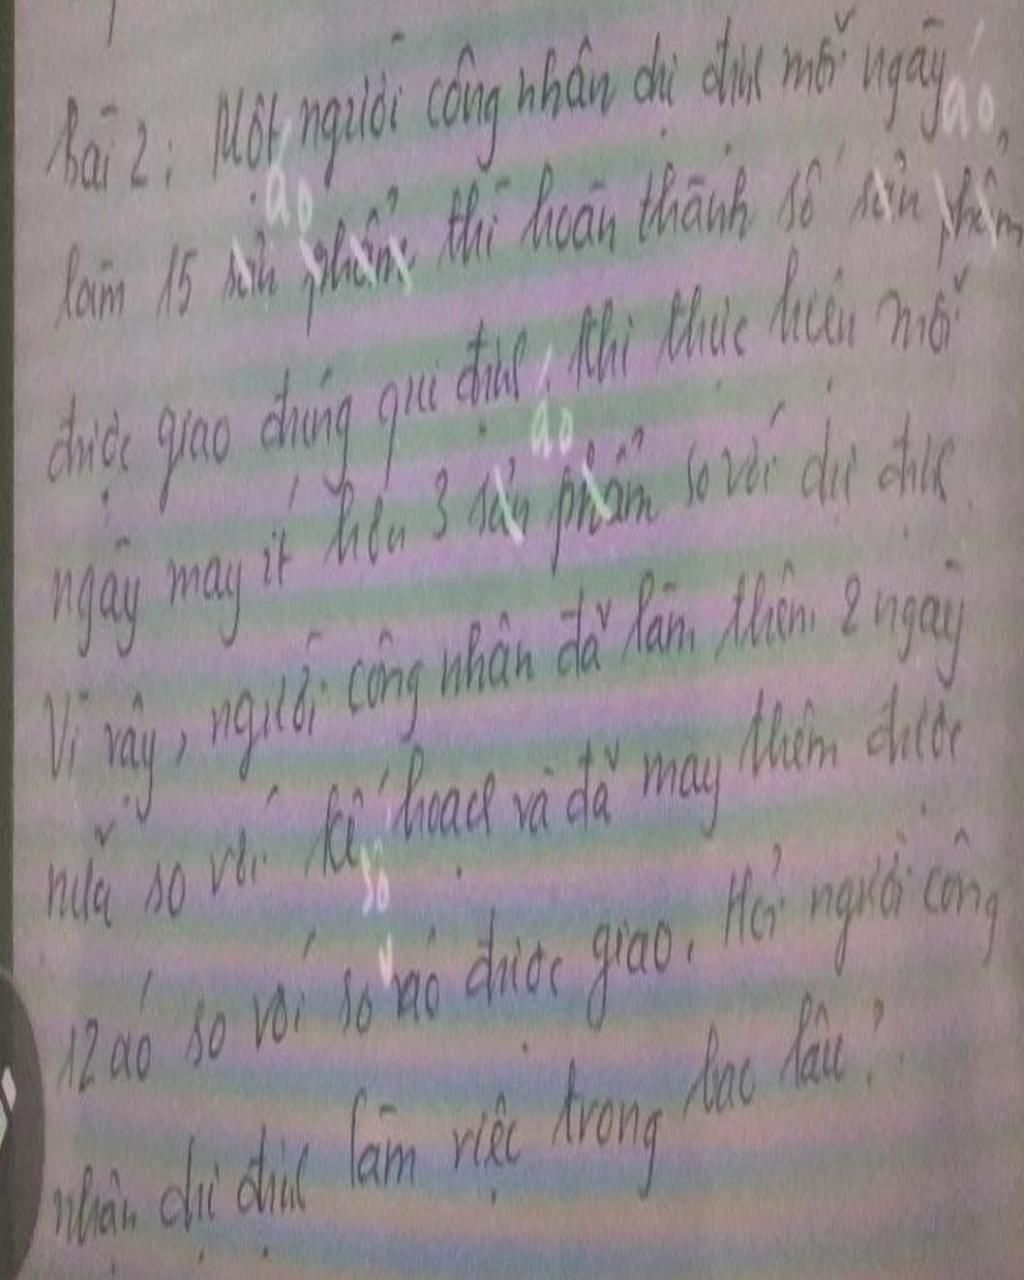 Bài 2: Một người công nhân dự định mỗi ngày
áo áo
làm 15 sản phẩm thì hoàn thành số sản phẩm
được giao đúng qui định. Khi thực hiện mỗi
áo
ngày may ít hơn 3 sản phẩm so với dự định
Vì vậy, người công nhân đã làm thêm 2 ngày
nữa so với kế hoạch và đã may thêm được
số
12 áo so với số áo được giao. Hỏi người công
nhân dự định làm việc trong bao lâu?